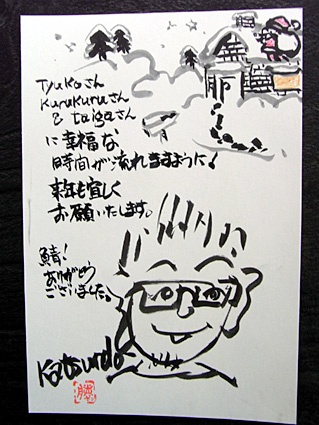 Tyukoさん
Kurukuruさん
& taigaさん
に幸福な、
時間が流れますように!
来年も宜しく
お願いたします。
鯖!
ありがとう
ございました。
Katsunda
勝